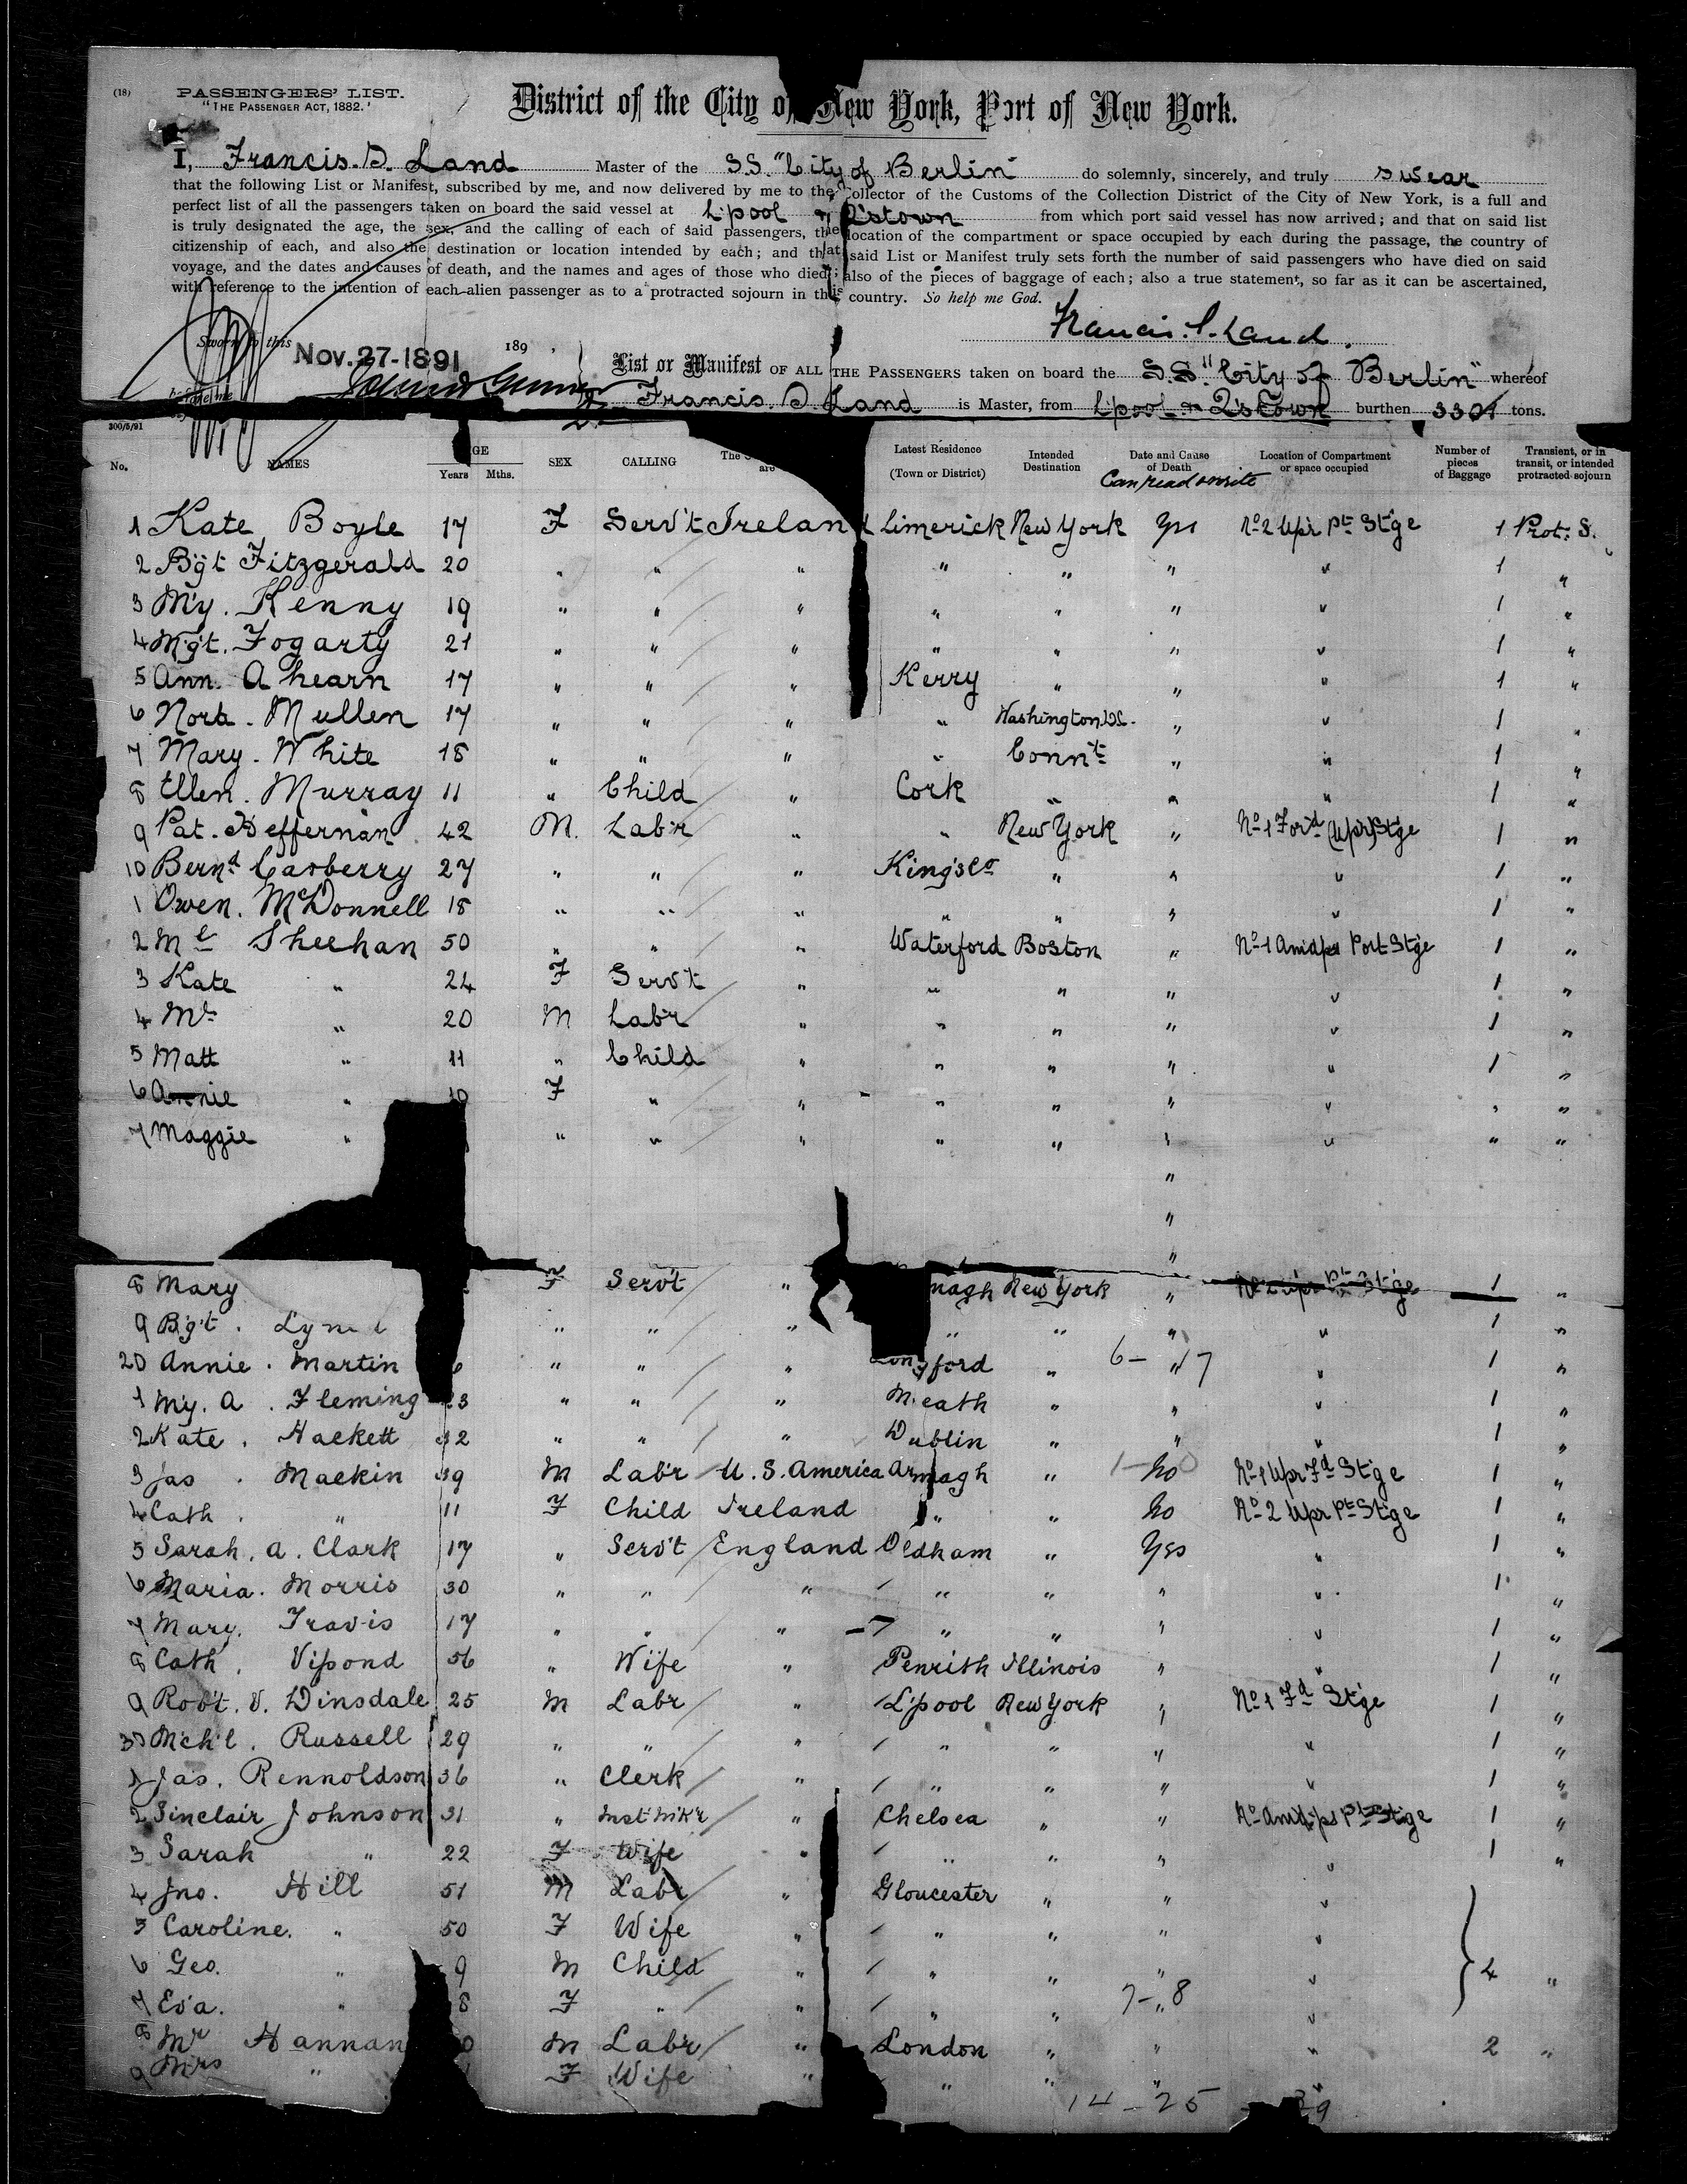 (18)
PASSENGERS' LIST.
"THE PASSENGER ACT, 1882."
District of the City of New York, Port of New York.
I, Francis. S. Land Master of the S.S. "City of Berlin" do solemnly, sincerely, and truly swear
that the following List or Manifest, subscribed by me, and now delivered by me to the Collector of the Customs of the Collection District of the City of New York, is a full and
perfect list of all the passengers taken on board the said vessel at L'pool & Q'stown from which port said vessel has now arrived; and that on said list
is truly designated the age, the sex, and the calling of each of said passengers, the location of the compartment or space occupied by each during the passage, the country of
citizenship of each, and also the destination or location intended by each; and that said List or Manifest truly sets forth the number of said passengers who have died on said
voyage, and the dates and causes of death, and the names and ages of those who died; also of the pieces of baggage of each; also a true statement, so far as it can be ascertained,
with reference to the intention of each alien passenger as to a protracted sojourn in this country. So help me God.
Francis. S. Land.
Sworn to this Nov. 27-1891 189
before me
List or Manifest OF ALL THE PASSENGERS taken on board the S.S. "City of Berlin" whereof
Francis. S. Land is Master, from L'pool & Q'stown burthen 3301 tons.
300/5/91
No. NAMES AGE Years Mths. SEX CALLING The are Latest Residence (Town or District) Intended Destination Date and Cause of Death Location of Compartment or space occupied Number of pieces of Baggage Transient, or in transit, or intended protracted sojourn
Can read or write
1 Kate Boyle 17 F Serv't Ireland Limerick New York Yes No 2 Upr Pt Stge 1 Prot: S.
2 Bgt Fitzgerald 20 " " " " " " " 1 "
3 My. Kenny 19 " " " " " " " 1 "
4 Mgt. Fogarty 21 " " " " " " " 1 "
5 Ann. Ahearn 17 " " " Kerry " " " 1 "
6 Nora. Mullen 17 " " " " Washington, D.C. " " 1 "
7 Mary. White 18 " " " " Connt " " 1 "
8 Ellen. Murray 11 " Child " Cork " " " 1 "
9 Pat. Heffernan 42 M. Lab'r " " New York " No 1 For'd (Upr) Stge 1 "
10 Bernd Casberry 27 " " " King's Co " " " 1 "
1 Owen. McDonnell 18 " " " " " " " 1 "
2 Ml Sheehan 50 " " " Waterford Boston " No 1 Amidps Port Stge 1 "
3 Kate " 24 F Serv't " " " " " 1 "
4 Ml " 20 M Lab'r " " " " " 1 "
5 Matt " 11 " Child " " " " " 1 "
6 Annie " 10 F " " " " " " " "
7 Maggie " " " " " " " " " "
"
"
"
8 Mary F Serv't " magh New York " No 2 Upr Pt Stge 1 "
9 Bg't. " " " " " " " 1 "
20 Annie. Martin 6 " " " Longford " " " 1 "
6-17
1 My. A. Fleming 23 " " " Meath " " " 1 "
2 Kate. Hackett 32 " " " Dublin " " " 1 "
3 Jas. Mackin 49 M Lab'r U.S. America Armagh " No No 1 Upr Fd Stge 1 "
4 Cath. " 11 F Child Ireland " " No No 2 Upr Pt Stge 1 "
5 Sarah. A. Clark 17 " Serv't England Oldham " Yes " 1 "
6 Maria. Morris 30 " " " " " " " 1 "
7 Mary. Travis 17 " " " " " " " 1 "
8 Cath. Vipond 56 " Wife " Penrith Illinois " " 1 "
9 Rob't. V. Dinsdale 25 M Lab'r " L'pool New York " No 1 Fd Stge 1 "
30 Mch'l. Russell 29 " " " " " " " 1 "
1 Jas. Rennoldson 36 " Clerk " " " " " 1 "
2 Sinclair Johnson 31 " Inst Mk'r " Chelsea " " No Amidps Pt Stge 1 "
3 Sarah " 22 F Wife " " " " " 1 "
4 Jno. Hill 51 M Lab'r " Gloucester " " "
5 Caroline. " 50 F Wife " " " " "
6 Geo. " 9 M Child " " " " " 4 "
7 Eva. " 8 F " " " " " "
7-8
8 Mr Hannan 0 M Lab'r " London " " " 2 "
9 Mrs " F Wife " " " " "
14-25 29